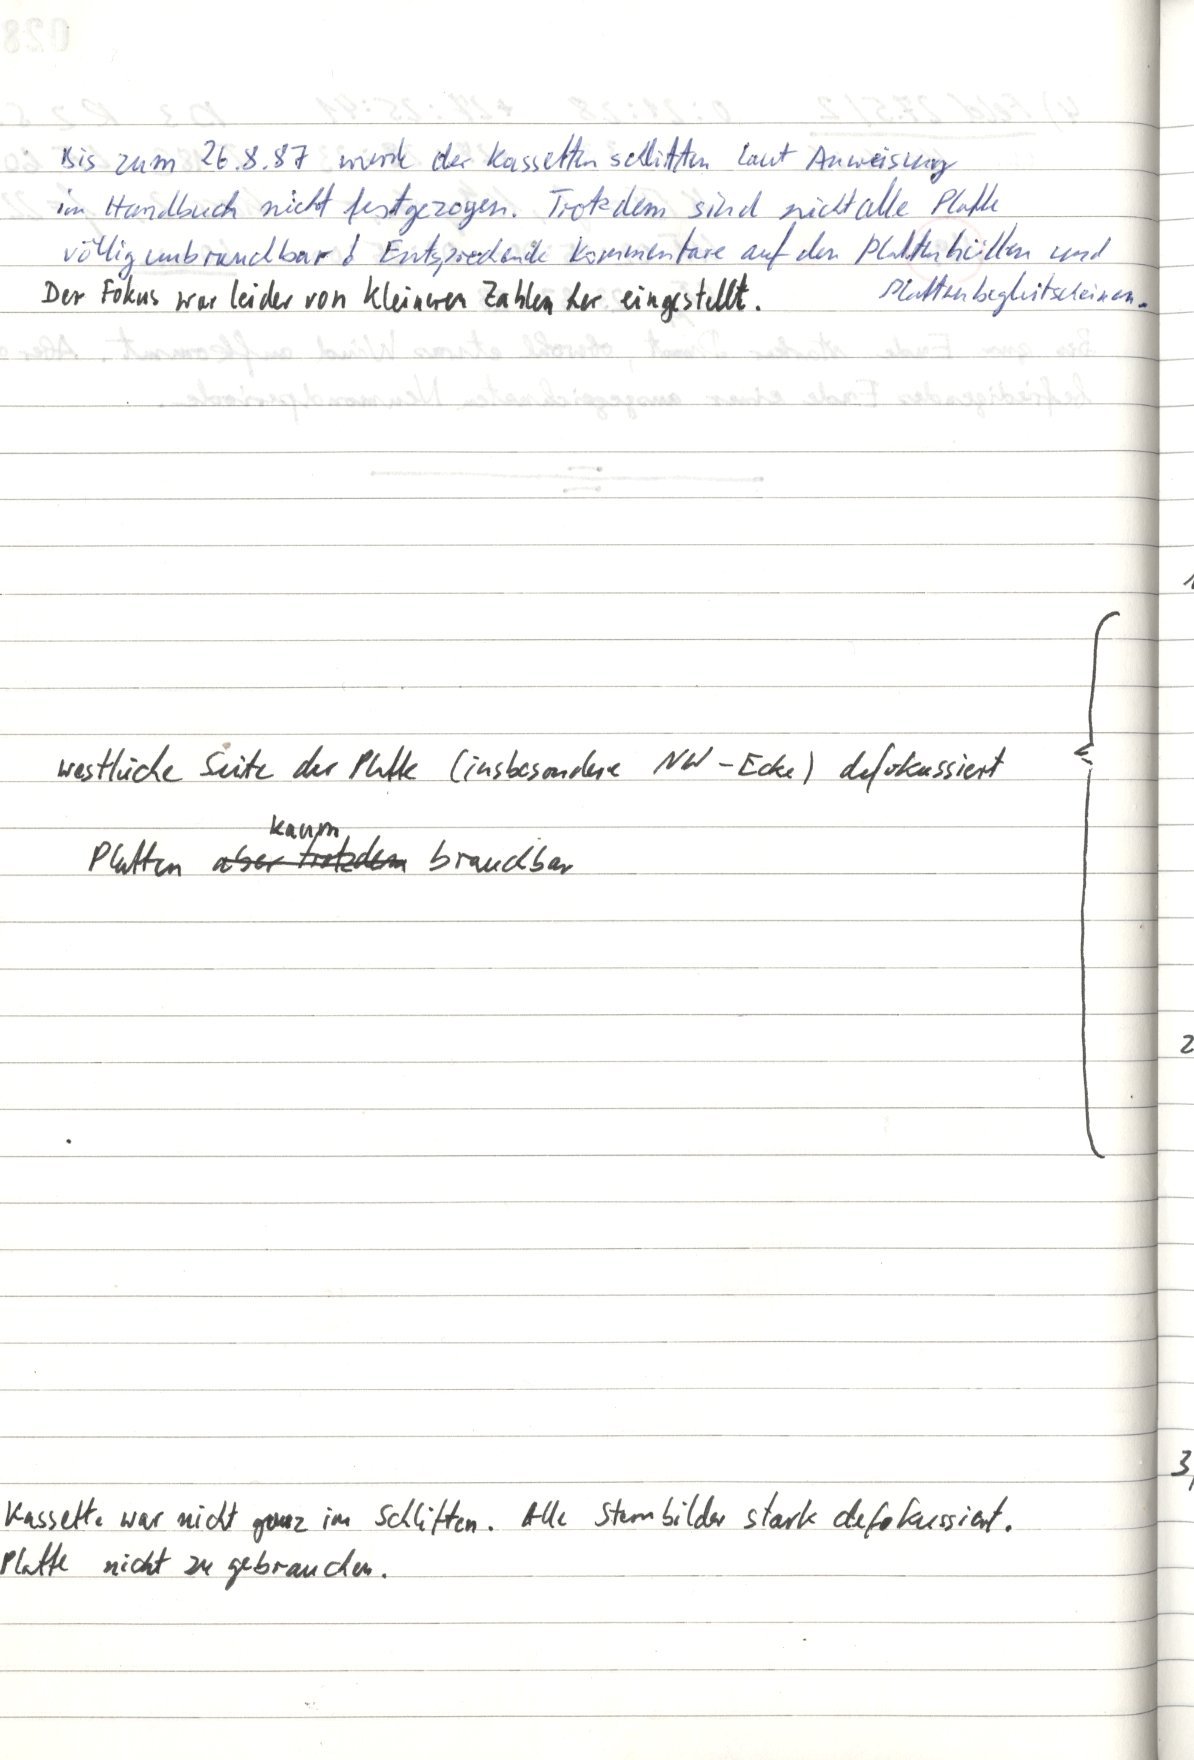 Bis zum 26.8.87 wurde der Kassettenschlitten laut Anweisung
im Handbuch nicht festgezogen. Trotzdem sind nicht alle Platten
völlig unbrauchbar! Entsprechende Kommentare auf den Plattenhüllen und
Plattenbegleitscheinen.
Der Fokus war leider von kleineren Zahlen her eingestellt.
1
westliche Seite der Platte (insbesondere NW-Ecke) defokussiert
kaum
Platten aber trotzdem brauchbar
2
3,
Kassette war nicht ganz im Schlitten. Alle Sternbilder stark defokussiert.
Platte nicht zu gebrauchen.